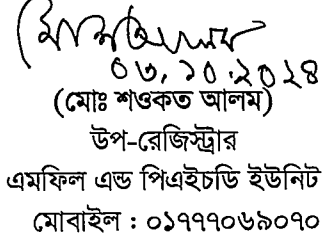 ০৬.১০.২০২৪
(মোঃ শওকত আলম)
উপ-রেজিস্ট্রার
এমফিল এন্ড পিএইচডি ইউনিট
মোবাইল : ০১৭৭৭০৬৯০৭০